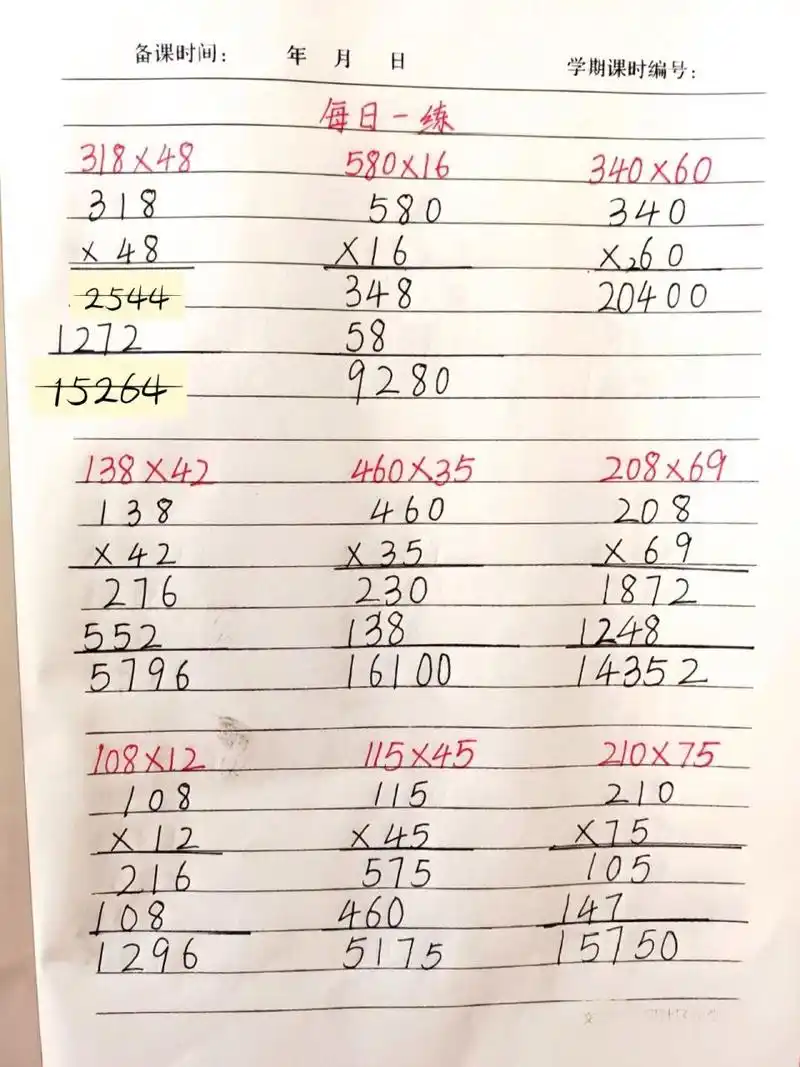 备课时间： 年 月 日 学期课时编号：
每日一练
318×48 580×16 340×60
318 580 340
×48 ×16 ×260
2544 348 20400
1272 58
15264 9280
138×42 460×35 208×69
138 460 208
×42 ×35 ×69
276 230 1872
552 138 1248
5796 16100 14352
108×12 115×45 210×75
108 115 210
×12 ×45 ×75
216 575 105
108 460 147
1296 5175 15750